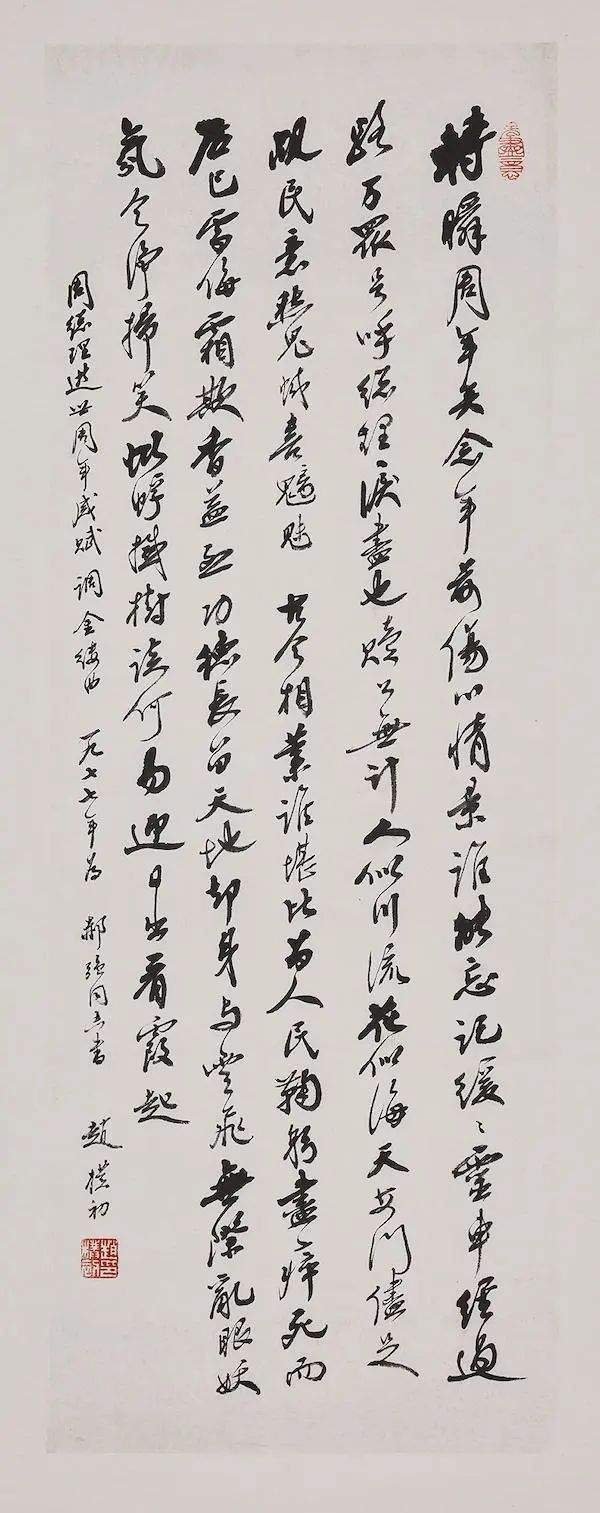 轉瞬周年矣念年前傷心情景誰能忘記緩〻靈車經過
路万眾号呼總理淚盡也贖公無計人似川流花似海天安門儘足
覘民意愁鬼蜮喜魑魅 古今相業誰堪比為人民鞠躬盡瘁死而
后已雪侮霜欺香益烈功德長留天地却身与雲飛無際亂眼妖
氛今净掃笑蚍蜉撼樹談何易迎日出看霞起
周總理逝世周年感賦 調金縷曲 一九七七年為 郝強同志書 趙樸初